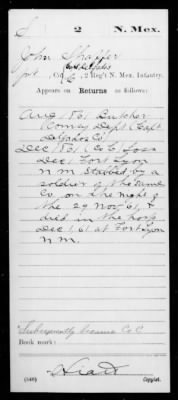 S 2 N. Mex.
John Shaffer
Pvt., Co. C, 2 Reg't N. Mex. Infantry.
Appears on Returns as follows:
Aug 1861 Butcher
Comsy Dept (Capt
Co)
Dec 1861 (Co C) Loss
Dec 1 Fort Lyon
N.M. Stabbed by a
soldier of the same
Co. on the night of
the 29 Nov 61, &
died in the hosp
Dec 1, 61 at Fort Lyon
N.M.
Subsequently became Co. C
Book mark:
(546) Copyist.